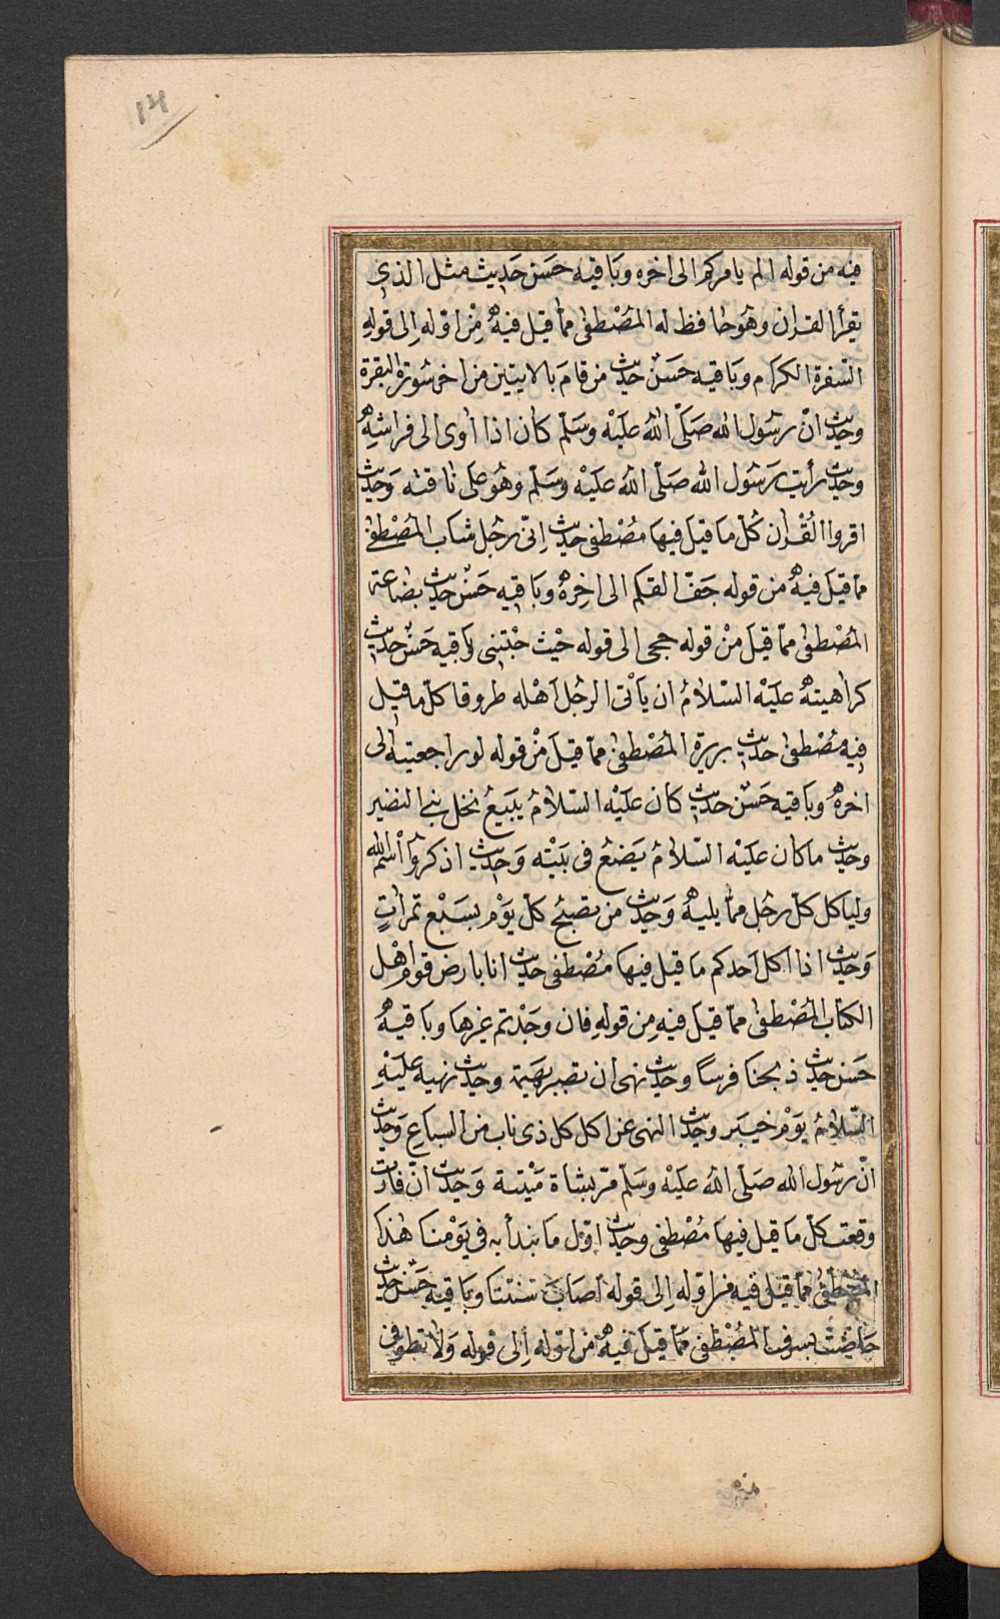 ١٣
فيه من قوله الم يامركم الى اخره وبَاقيه حَسَن حَديث مثل الذي
يَقرأ القران وهُو حافظ له المُصْطفى ممّا قيل فيهُ مِنْ اوّله اِلى قولهِ
السّفرة الكرام وبَاقيه حَسَنٌ حَديث من قامَ بالايتين من اخر سُورة البقرة
وحَديث انّ رسُول الله صَلّى اللهُ عليْه وسَلّم كان اذا أوى الى فراشِهِ
وحَديث رأيت رسُول الله صَلّى اللهُ عليْه وسَلّم وهُو على ناقته وحَديث
اقروا القُرْان كُلّ مَا قيَل فيهَا مُصْطفى حَديث اِنّى رجُل شاب المُصْطفى
ممّا قيَل فيهُ من قوله جَفّ القلم الى اخِرِهُ وبَاقيه حَسَنٌ حَديث بضَاعة
المُصْطفى ممّا قيلَ منْ قوله حجى الى قوله حَيْث حبْتنى وَباقيه حَسَن حَديث
كراهيتهُ عليْه السّلامُ ان يأتى الرجُل اَهْله طروقا كلّ ما قيل
فيه مُصْطفى حَديث بريرة المُصْطفى ممّا قيلَ منْ قوله لو راجعتيه الى
اخرهُ وبَاقيه حَسَنٌ حَديث كان عليْه السّلامُ يَبيعُ نخل بنى النضير
وحَديث ما كان عليْه السّلامُ يَصْنع فى بَيْته وَحَديث اذكروا اسْم الله
ولياكل كلّ رجُل ممّا يليهُ وَحَديث من تصبح كلّ يَوْم بسَبْع تمراتٍ
وَحَديث اذا اكل اَحدكم ما قيل فيها مُصْطفى حَديث انا بارض قوم اهْل
الكتاب المُصْطفى ممّا قيَل فيْهِ مِن قولهِ فان وجَدْتم غيرهَا وبَاقيهُ
حَسَن حَديث ذبحنا فرسًا وحَديث نهى ان تصبر بهيَمة وحَديث نهيه عليْهِ
السّلامُ يَوْم خيْبَر وحَديث النهى عن اكل كل ذى ناب من السباعِ وَحَديث
انّ رسُول الله صَلّى اللهُ عليْه وسَلّم مرّ بشاة مَيْتة وَحَديث انّ فارة
وقعت كلّ مَا قيل فيهَا مُصْطفى وحَديث اوّل مَا نبدأ به فى يَوْمنا هٰذا
المُصْطفىُ ممّا قيْل فيه من اوّله اِلى قوله اَصَابَ سُنتنا وبَاقيه حَسَن حَديث
حَاضت بسرف المُصْطفى ممّا قيَل فيهُ من اوّله اِلى قوله وَلا تطوفى